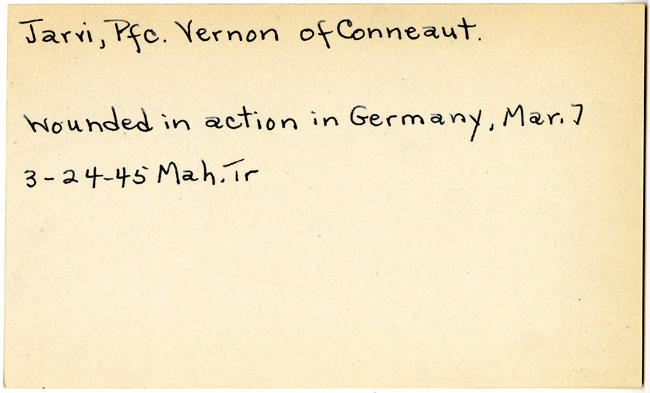 Jarvi, Pfc. Vernon of Conneaut.
Wounded in action in Germany, Mar. 7
3-24-45 Mah. Tr